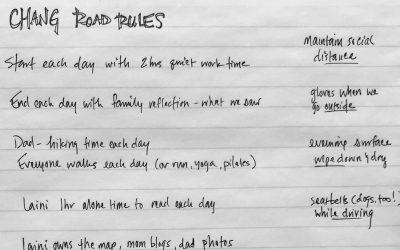 CHANG ROAD RULES
maintain social
distance
Start each day with 2hrs quiet work time
gloves when we
go outside
End each day with family reflection - what we saw
Dad - hiking time each day
evening surface
Everyone walks each day (or run, yoga, pilates)
wipe down & dry
Laini 1hr alone time to read each day
seatbelts (dogs, too!)
while driving
Laini owns the map, mom blogs, dad photos